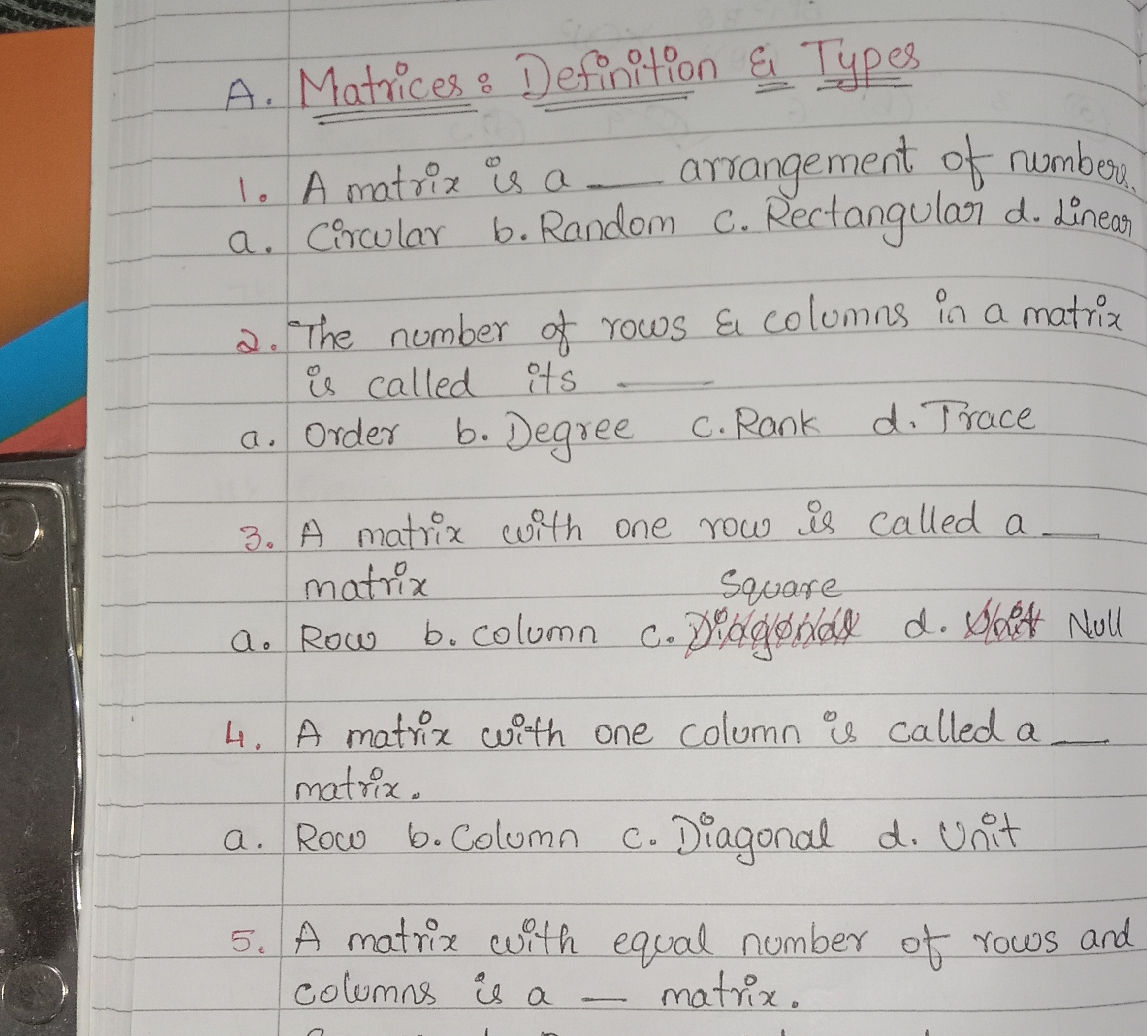 A. Matrices : Definition & Types
1. A matrix is a __ arrangement of numbers.
a. Circular b. Random c. Rectangular d. Linear
2. The number of rows & columns in a matrix
is called its __
a. Order b. Degree c. Rank d. Trace
3. A matrix with one row is called a __
matrix
Square
a. Row b. column c. Diagonal d. Unit Null
4. A matrix with one column is called a __
matrix.
a. Row b. Column c. Diagonal d. Unit
5. A matrix with equal number of rows and
columns is a __ matrix.